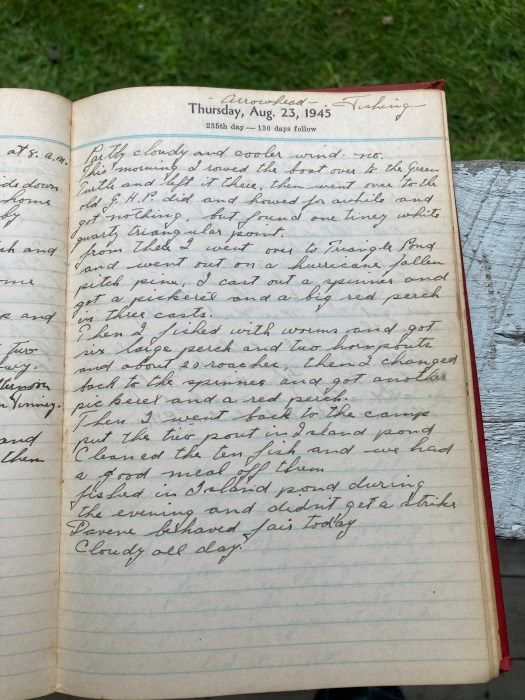 at 8. a.m.
down
home
by
and
and
two
and
them
- Arrowhead - Fishing
Thursday, Aug. 23, 1945
235th day — 130 days follow
Partly cloudy and cooler wind - no.
This morning I rowed the boat over to the Green
Turtle and left it there, then went over to the
old G.H.P. did and howed for awhile and
got nothing, but found one tiney white
quartz triangular point.
from there I went over to Triangle Pond
and went out on a hurricane fallen
pitch pine, I cast out a spinner and
got a pickerel and a big red perch
in three casts.
Then I fished with worms and got
six large perch and two hornpouts
and about 20 roaches, then I changed
back to the spinner and got another
pickerel and a red perch.
Then I went back to the camp
put the two pout in Island pond
Cleaned the ten fish and we had
a good meal off them
fished in Island pond during
the evening and didn't get a strike
behaved fair today
Cloudy all day.